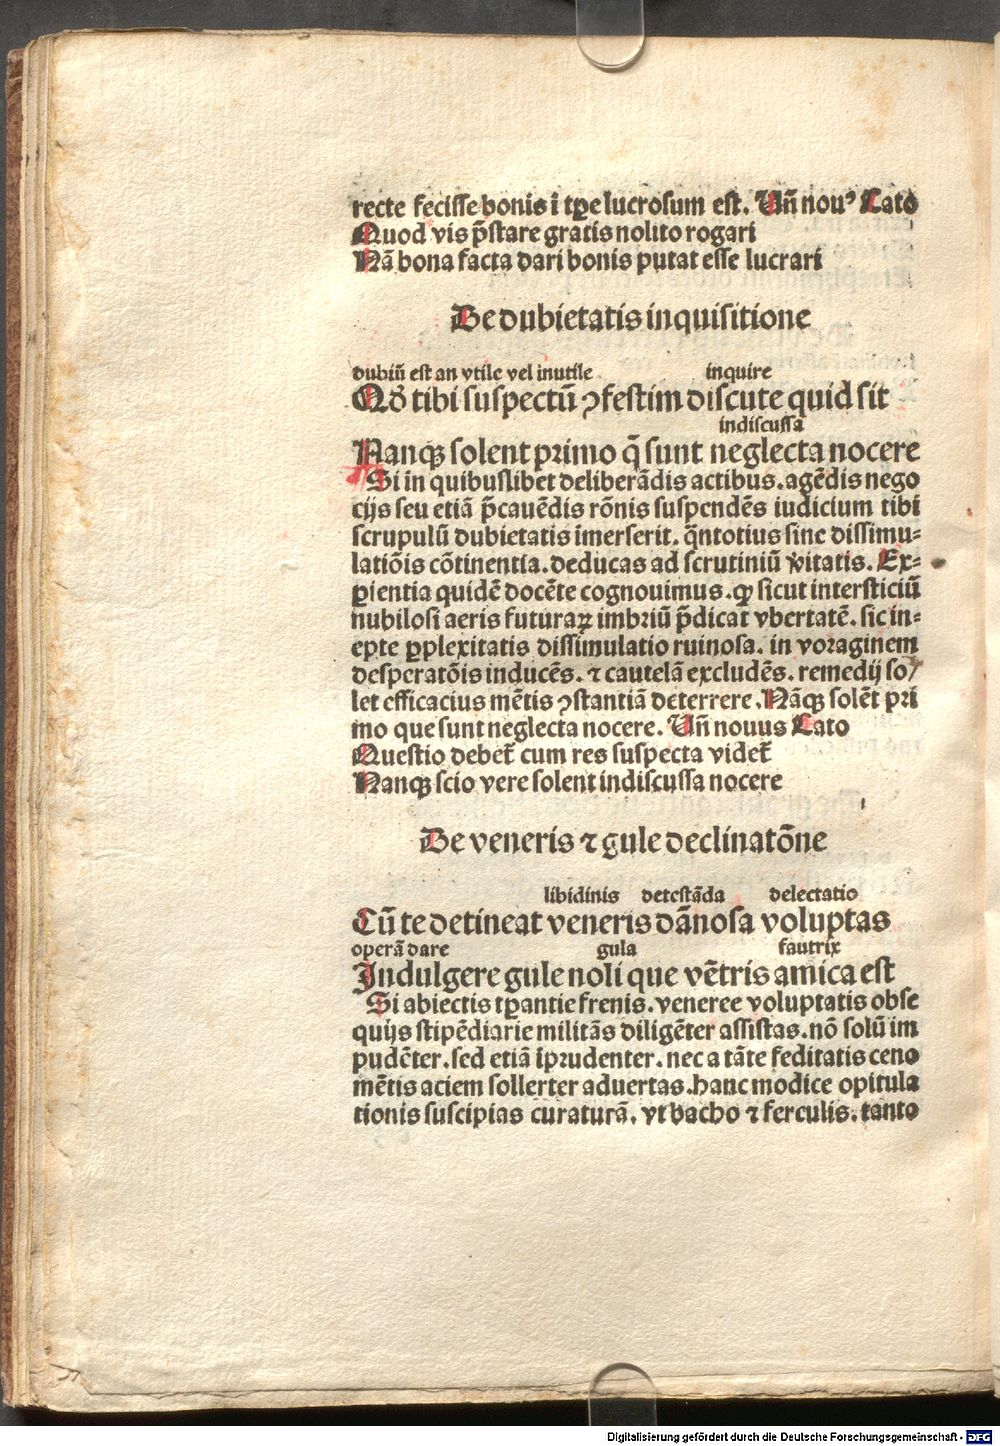 recte fecisse bonis ī tꝑe lucrosum est. Vn̄ nouꝰ Cato
Quod vis p̄stare gratis nolito rogari
Nā bona facta dari bonis putat esse lucrari
De dubietatis inquisitione
dubiū est an vtile vel inutile inquire
Qď tibi suspectū ꝯfestim discute quid sit
indiscussa
Nanqꝫ solent primo q̄ sunt neglecta nocere
Si in quibuslibet deliberādis actibus. agēdis nego
cijs seu etiā p̄cauēdis rōnis suspendēs iudicium tibi
scrupulū dubietatis īmerserit. q̄ntotius sine dissimu⸗
latiōis cōtinentia. deducas ad scrutiniū v̾itatis. Ex⸗
ꝑientia quidē docēte cognouimus. ꝙ sicut intersticiū
nubilosi aeris futuraꝝ imbriū p̄dicat vbertatē. sic in⸗
epte ꝑplexitatis dissimulatio ruinosa. in voraginem
desperatōis inducēs. ⁊ cautelā excludēs. remedij so/
let efficacius mētis ꝯstantiā deterrere. Nāqꝫ solēt pri
mo que sunt neglecta nocere. Vn̄ nouus Cato
Questio debet̄ cum res suspecta videt̄
Nanqꝫ scio vere solent indiscussa nocere
De veneris ⁊ gule declinatōne
libidinis detestāda delectatio
Cū te detineat veneris dānosa voluptas
operā dare gula fautrix
Indulgere gule noli que vētris amica est
Si abiectis tꝑantie frenis. veneree voluptatis obse
quijs stipēdiarie militās diligēter assistas. nō solū im
pudēter. sed etiā īprudenter. nec a tāte feditatis ceno
mētis aciem sollerter aduertas. hanc modice opitula
tionis suscipias curaturā. vt bacho ⁊ ferculis. tanto
Digitalisierung gefördert durch die Deutsche Forschungsgemeinschaft - DFG